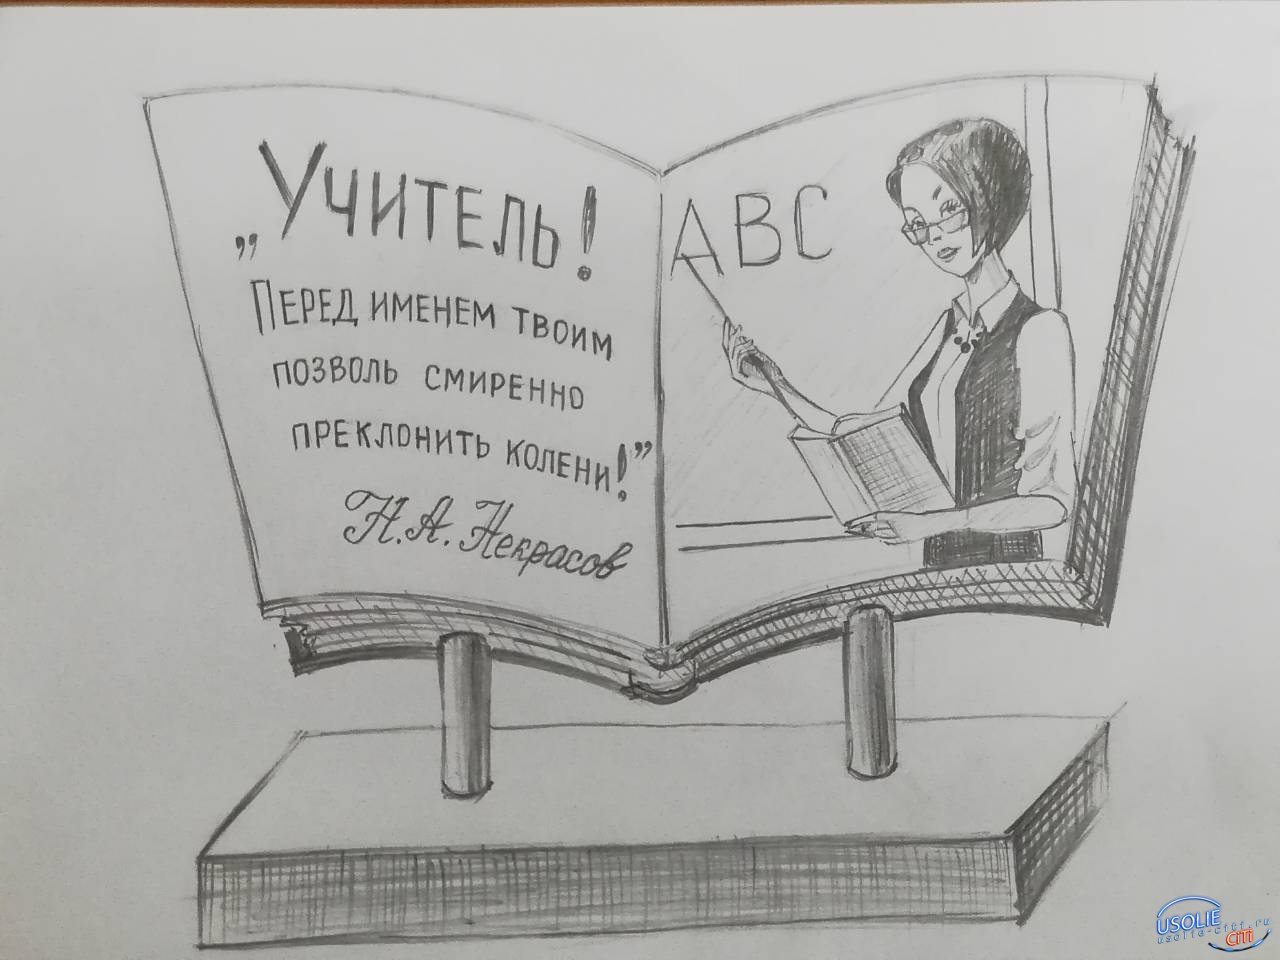 „Учитель!
Перед именем твоим
позволь смиренно
преклонить колени!”
Н.А. Некрасов
ABC
USOLIE
usolie-citi.ru
CITI